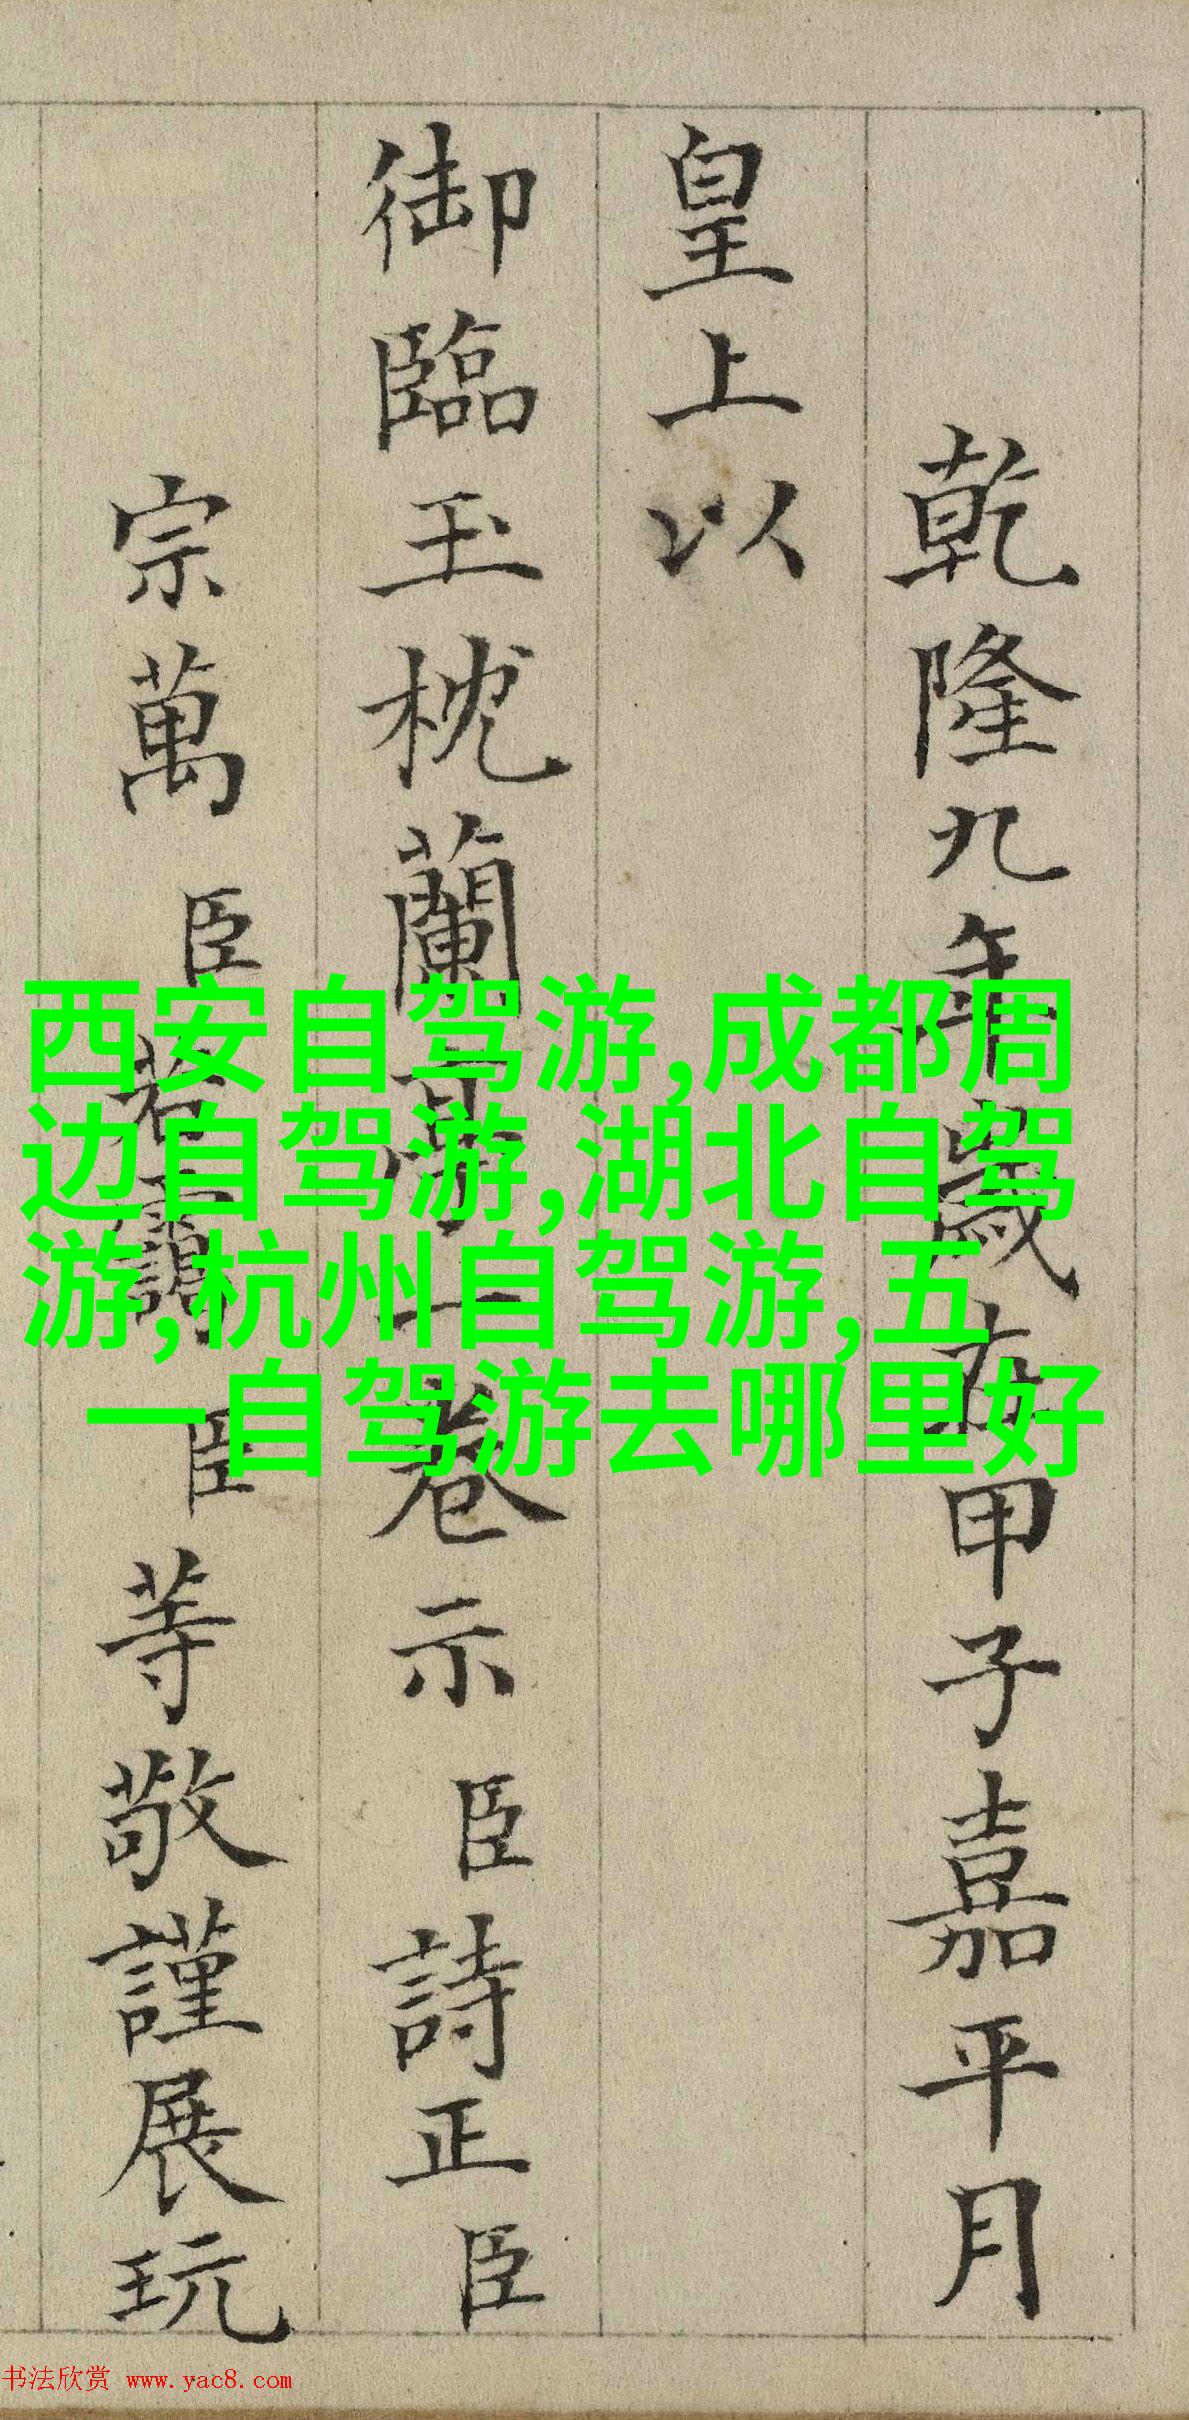 乾隆九年歲在甲子嘉平月
皇上以
御臨玉枕蘭亭一卷示臣詩正臣
宗萬臣若靄臣等敬謹展玩
西安自驾游,成都周
边自驾游,湖北自驾
游,杭州自驾游,五
一自驾游去哪里好
书法欣赏 www.yac8.com